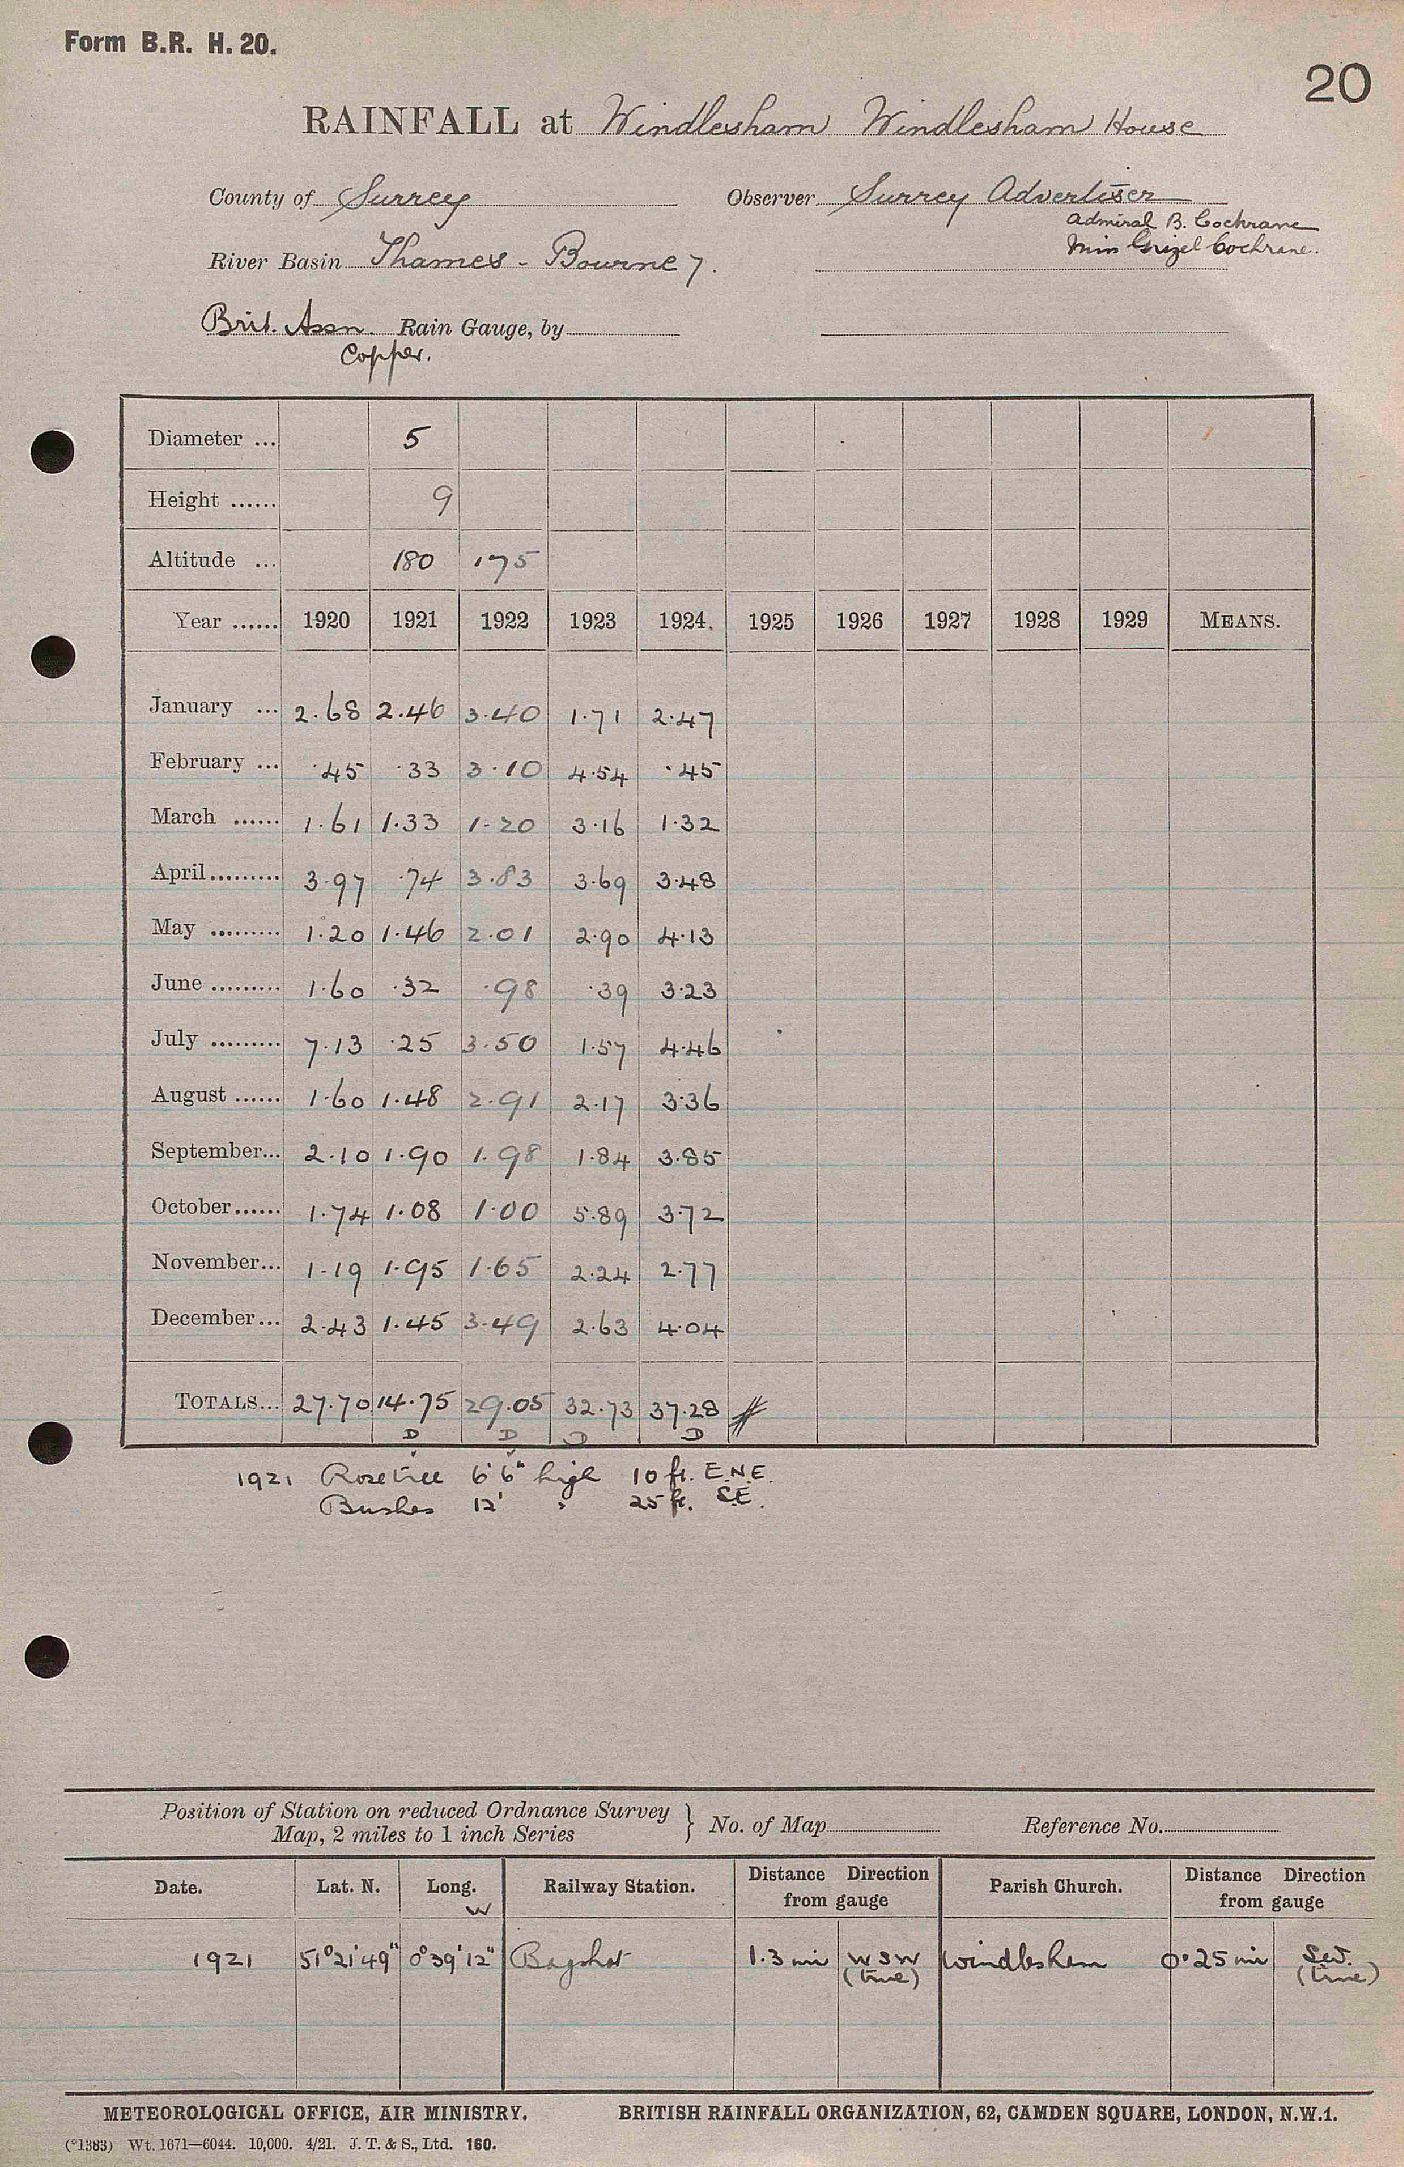 Form B.R. H. 20.
20
RAINFALL at Windlesham Windlesham House
County of Surrey Observer Surrey Advertiser
Admiral B. Cochrane
River Basin Thames - Bourne 7. Miss Grizel Cochrane.
Brit. Assn. Rain Gauge, by
Copper.
Diameter ... 5
Height ...... 9
Altitude ... 180 175
Year ...... 1920 1921 1922 1923 1924. 1925 1926 1927 1928 1929 MEANS.
January ... 2.68 2.46 3.40 1.71 2.47
February ... .45 .33 3.10 4.54 .45
March ...... 1.61 1.33 1.20 3.16 1.32
April......... 3.97 .74 3.83 3.69 3.48
May ......... 1.20 1.46 2.01 2.90 4.13
June ......... 1.60 .32 .98 .39 3.23
July ......... 7.13 .25 3.50 1.57 4.46
August ...... 1.60 1.48 2.91 2.17 3.36
September... 2.10 1.90 1.98 1.84 3.85
October...... 1.74 1.08 1.00 5.89 3.72
November... 1.19 1.95 1.65 2.24 2.77
December... 2.43 1.45 3.49 2.63 4.04
TOTALS... 27.70 14.75 29.05 32.73 37.28
D D D D
1921 Rosetree 6'6" high 10 ft. E.N.E.
Bushes 12' " 25 ft. S.E.
Position of Station on reduced Ordnance Survey
Map, 2 miles to 1 inch Series } No. of Map Reference No.
Date. Lat. N. Long. W Railway Station. Distance Direction from gauge Parish Church. Distance Direction from gauge
1921 51°21'49" 0°39'12" Bagshot 1.3 mi WSW (true) Windlesham 0.25 mi SW. (true)
METEOROLOGICAL OFFICE, AIR MINISTRY. BRITISH RAINFALL ORGANIZATION, 62, CAMDEN SQUARE, LONDON, N.W.1.
(*1383) Wt. 1671—6044. 10,000. 4/21. J. T. & S., Ltd. 160.